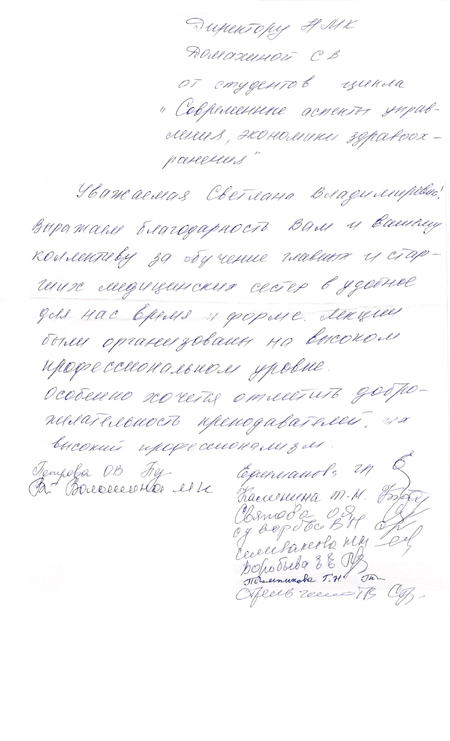 Директору НМК
Домахиной С В
от студентов цикла
"Современные аспекты управ-
ления, экономики здравоох-
ранения"
Уважаемая Светлана Владимировна!
Выражаем благодарность Вам и Вашему
коллективу за обучение главных и стар-
ших медицинских сестер в удобное
для нас время и форме. Лекции
были организованы на высоком
профессиональном уровне.
Особенно хочется отметить добро-
желательность преподавателей, их
высокий профессионализм.
Петрова ОВ
Волошина
Каменина Т.Н.
Святова О.Я
Селиванова
Воробьева ЗВ